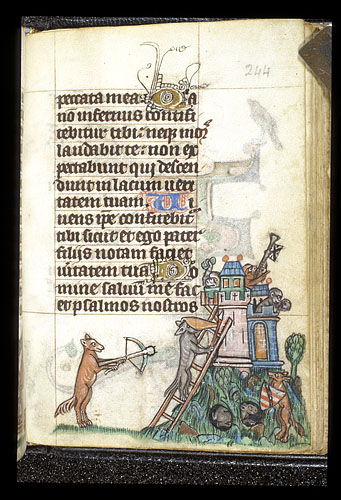 244
peccata mea Q a
nō infernus confi
tebitur tibi neqꝫ
laudabit te non ex
pectabunt qui descen
dunt in lacum ueri
tatem tuam Vi
uens ip̄e confitebit᷑
tibi sicut et ego pater
filijs notam faciet
ūitatem tuā Do
mine saluū me fac
et psalmos nostros